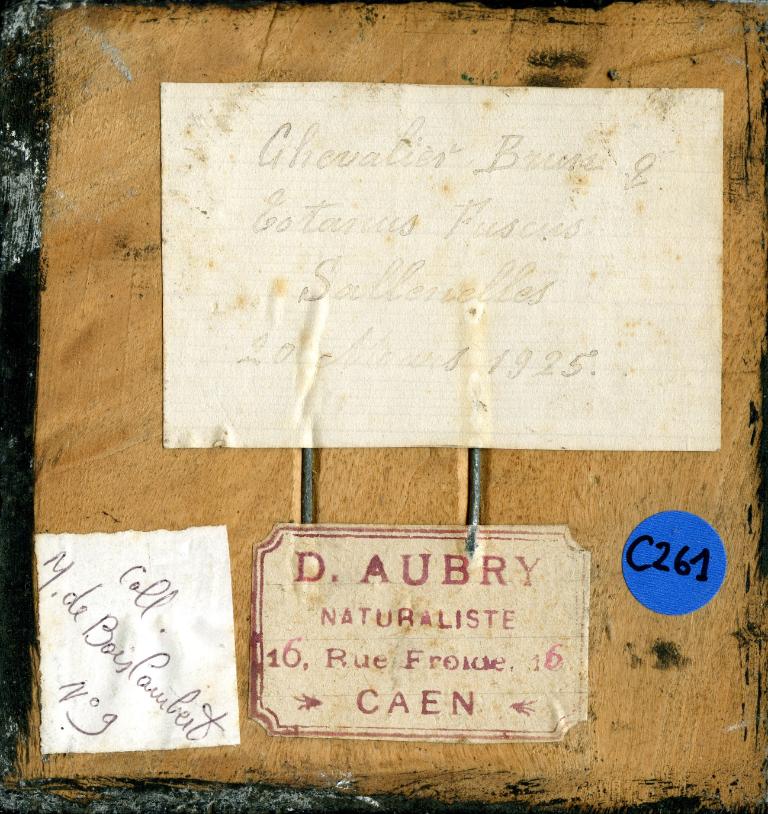 Chevalier Brun ♀
Totanus Fuscus
Sallenelles
20 Mars 1925.
Coll.
M. de Bois Lambert
N° 9
D. AUBRY
NATURALISTE
16, Rue Froide, 16
CAEN
C261